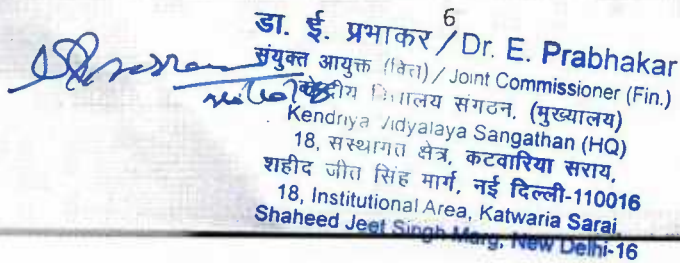 6
डा. ई. प्रभाकर / Dr. E. Prabhakar
संयुक्त आयुक्त (वित्त) / Joint Commissioner (Fin.)
केन्द्रीय विद्यालय संगठन, (मुख्यालय)
Kendriya Vidyalaya Sangathan (HQ)
18, संस्थागत क्षेत्र, कटवारिया सराय,
शहीद जीत सिंह मार्ग, नई दिल्ली-110016
18, Institutional Area, Katwaria Sarai,
Shaheed Jeet Singh Marg, New Delhi-16